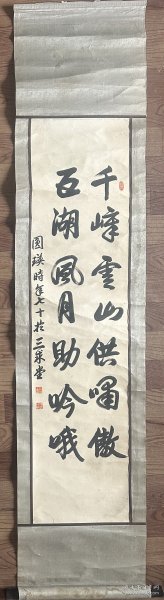 千峰雲山供嘯傲
五湖風月助吟哦
圆瑛時年七十於三乘堂